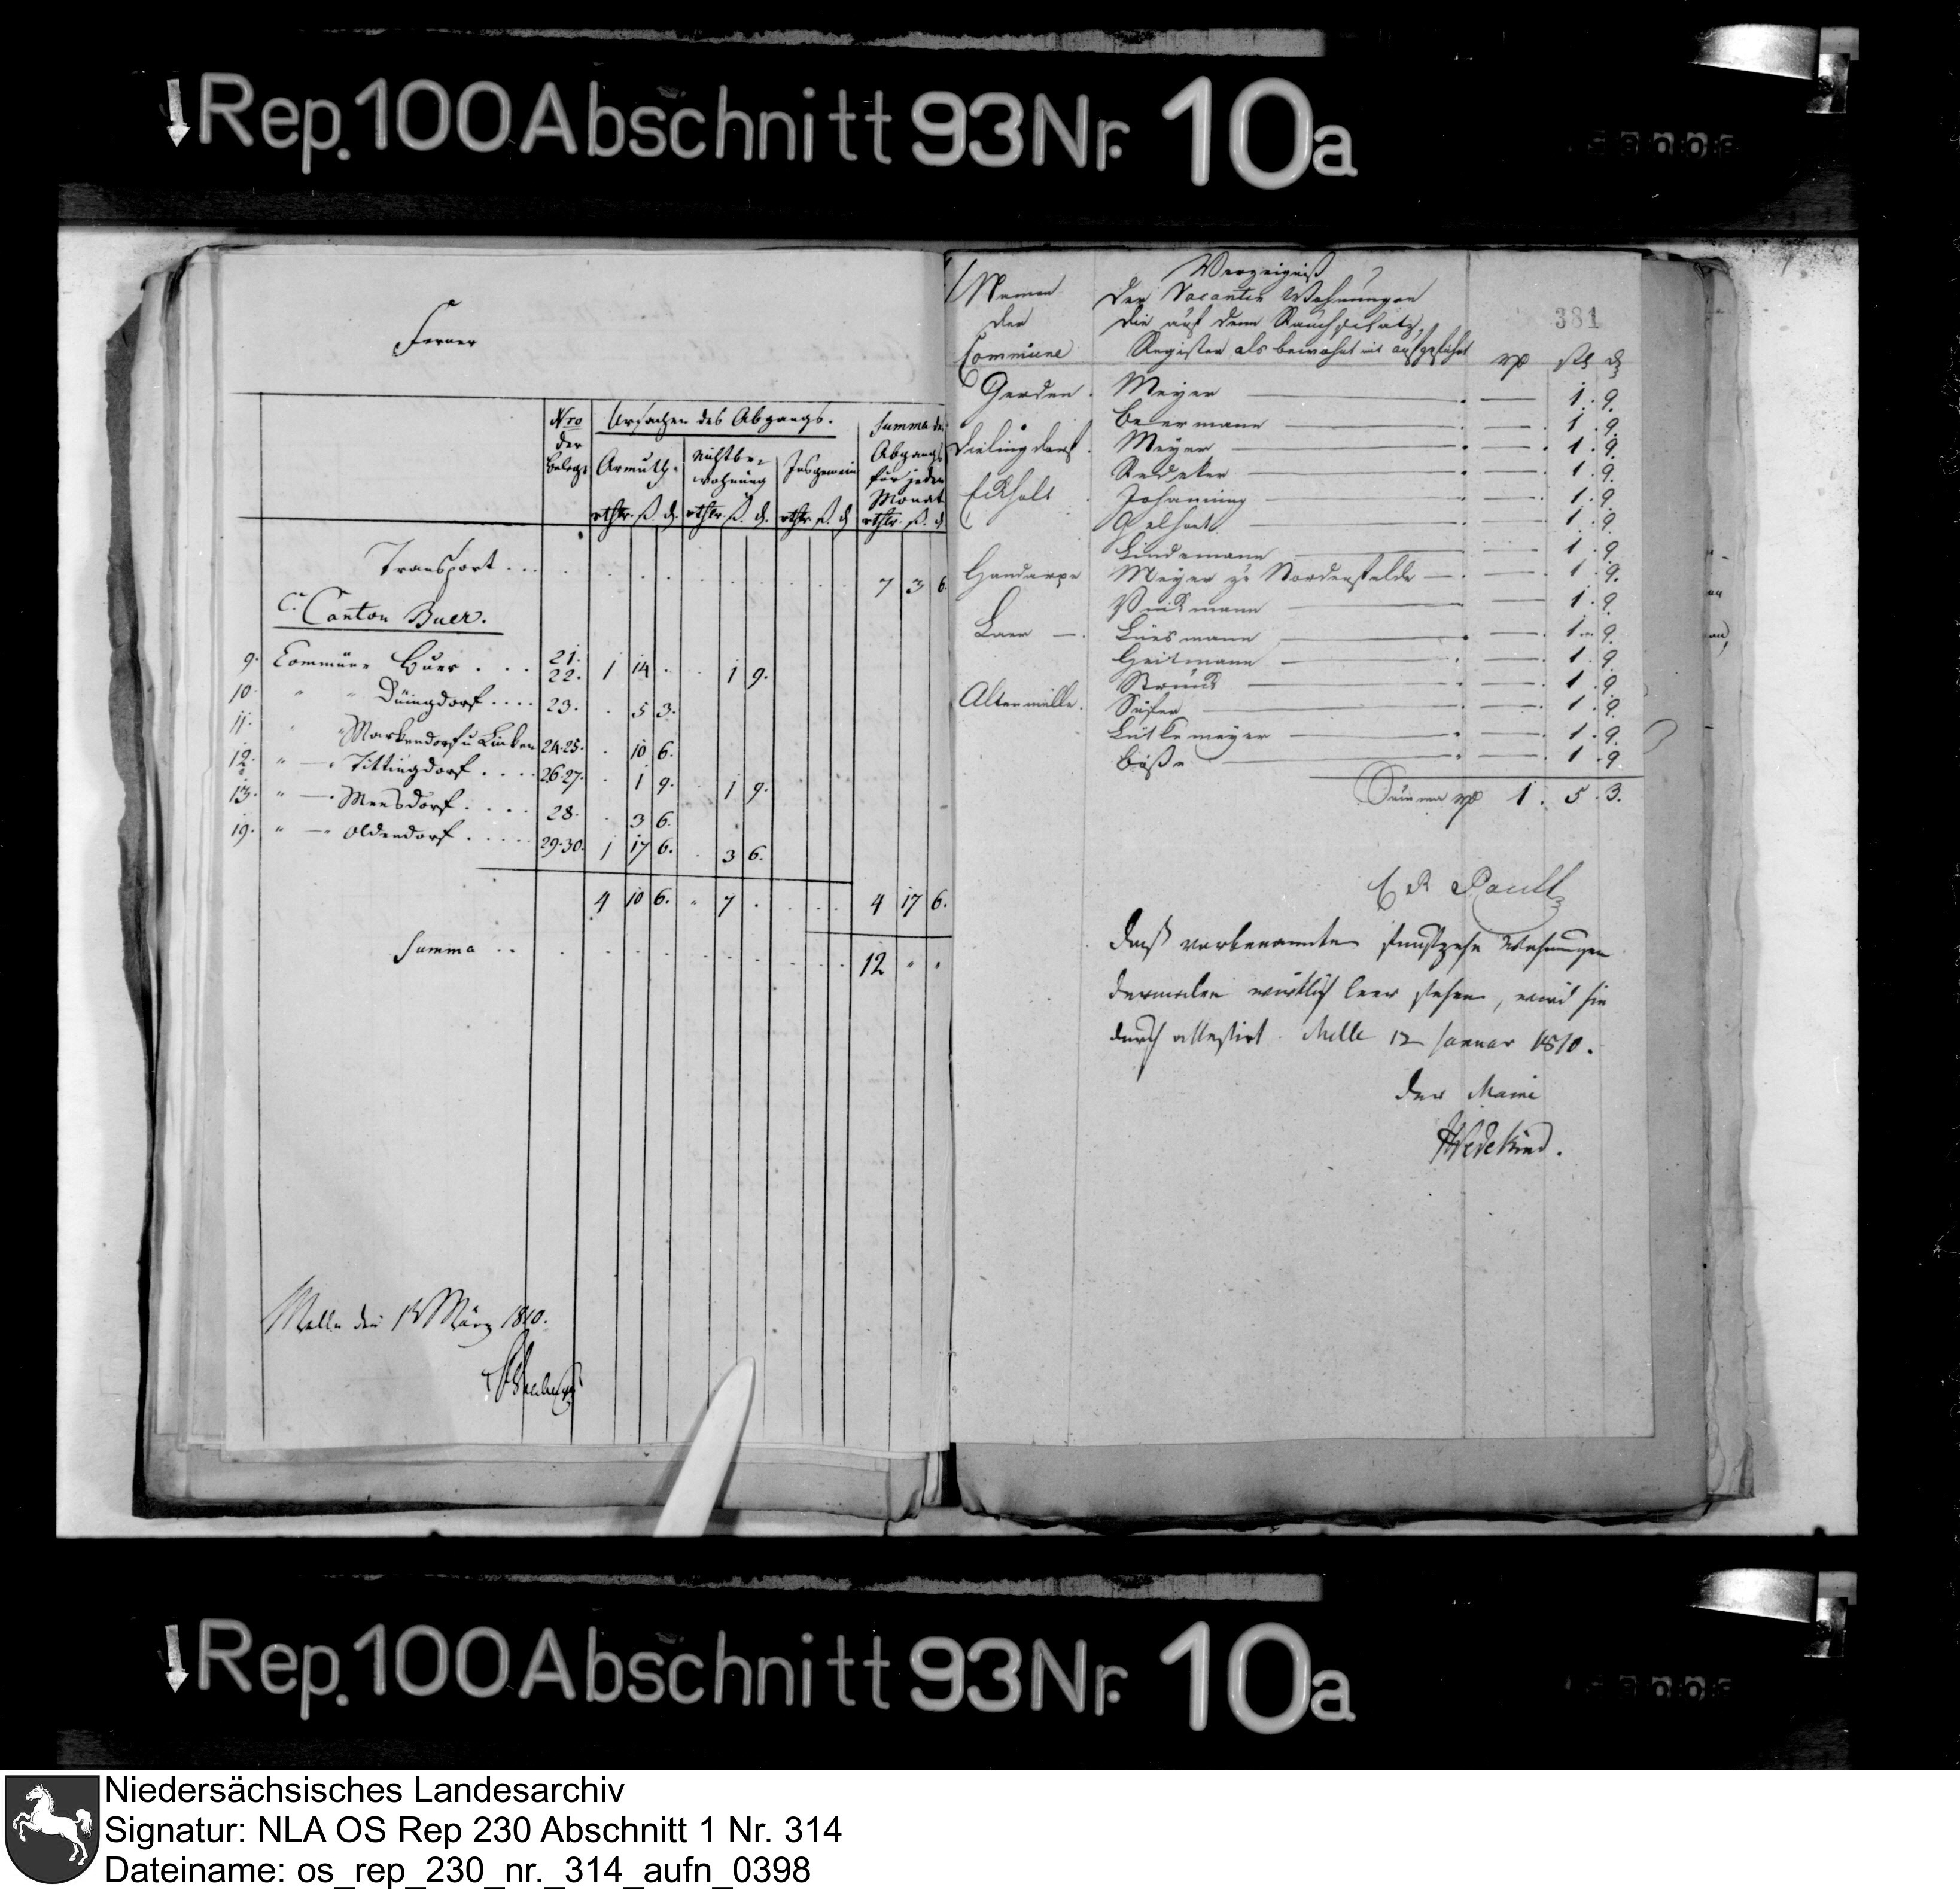 Rep. 100 Abschnitt 93 Nr. 10a
Ferner
Nro der Belege
Ursachen des Abgangs.
Armuth.
Nichtbewohnung
Insgemein
Summa des Abgangs für jeden Monat
rthlr. ß. d. rthlr. ß. d. rthlr. ß. d. rthlr. ß. d.
Transport . . . 7 3 6.
C. Canton Buer.
9. Commüne Buer . . . 21. 22. 1 14 . . 1 9.
10. " " Düingdorf . . . . 23. . 5 3.
11. " " Markendorf u Linken 24.25. . 10 6.
12. " — Tittingdorf . . . . 26.27. . 1 9. . 1 9.
13. " — Meesdorf . . . . 28. . 3 6.
19. " — Oldendorf . . . . . 29.30. 1 17 6. . 3 6.
4 10 6. " 7 . . . . 4 17 6.
Summa . . 12 " "
Melle den März 1810.
381
Namen der Commüne
Verzeigniß
der Vacanten Wohnungen
die auf dem Rauchschatz,
Register als bewohnt mit aufgeführt
Gerden . Meyer — 1 . 9.
Beermann — 1 . 9.
Dielingdorf . Meyer — 1 . 9.
Redeker — 1 . 9.
Eickholt . Johanning — 1 . 9.
Gelhart — 1 . 9.
Lindemann — 1 . 9.
Handarpe Meyer zu Nordenfelde — 1 . 9.
mann — 1 . 9.
Laer — . Lüesmann — 1 . 9.
Heitmann — 1 . 9.
Strück — 1 . 9.
Altenmelle . — 1 . 9.
Lütkemeyer — 1 . 9.
Böße — 1 . 9
Summa 1 . 5 . 3.
Daß vorbenannte funfzehn Wohnungen
dermalen würklich leer stehen, wird hie
durch attestirt. Melle 12 Januar 1810.
Der Maire
Wedekind.
Rep. 100 Abschnitt 93 Nr. 10a
Niedersächsisches Landesarchiv
Signatur: NLA OS Rep 230 Abschnitt 1 Nr. 314
Dateiname: os_rep_230_nr._314_aufn_0398